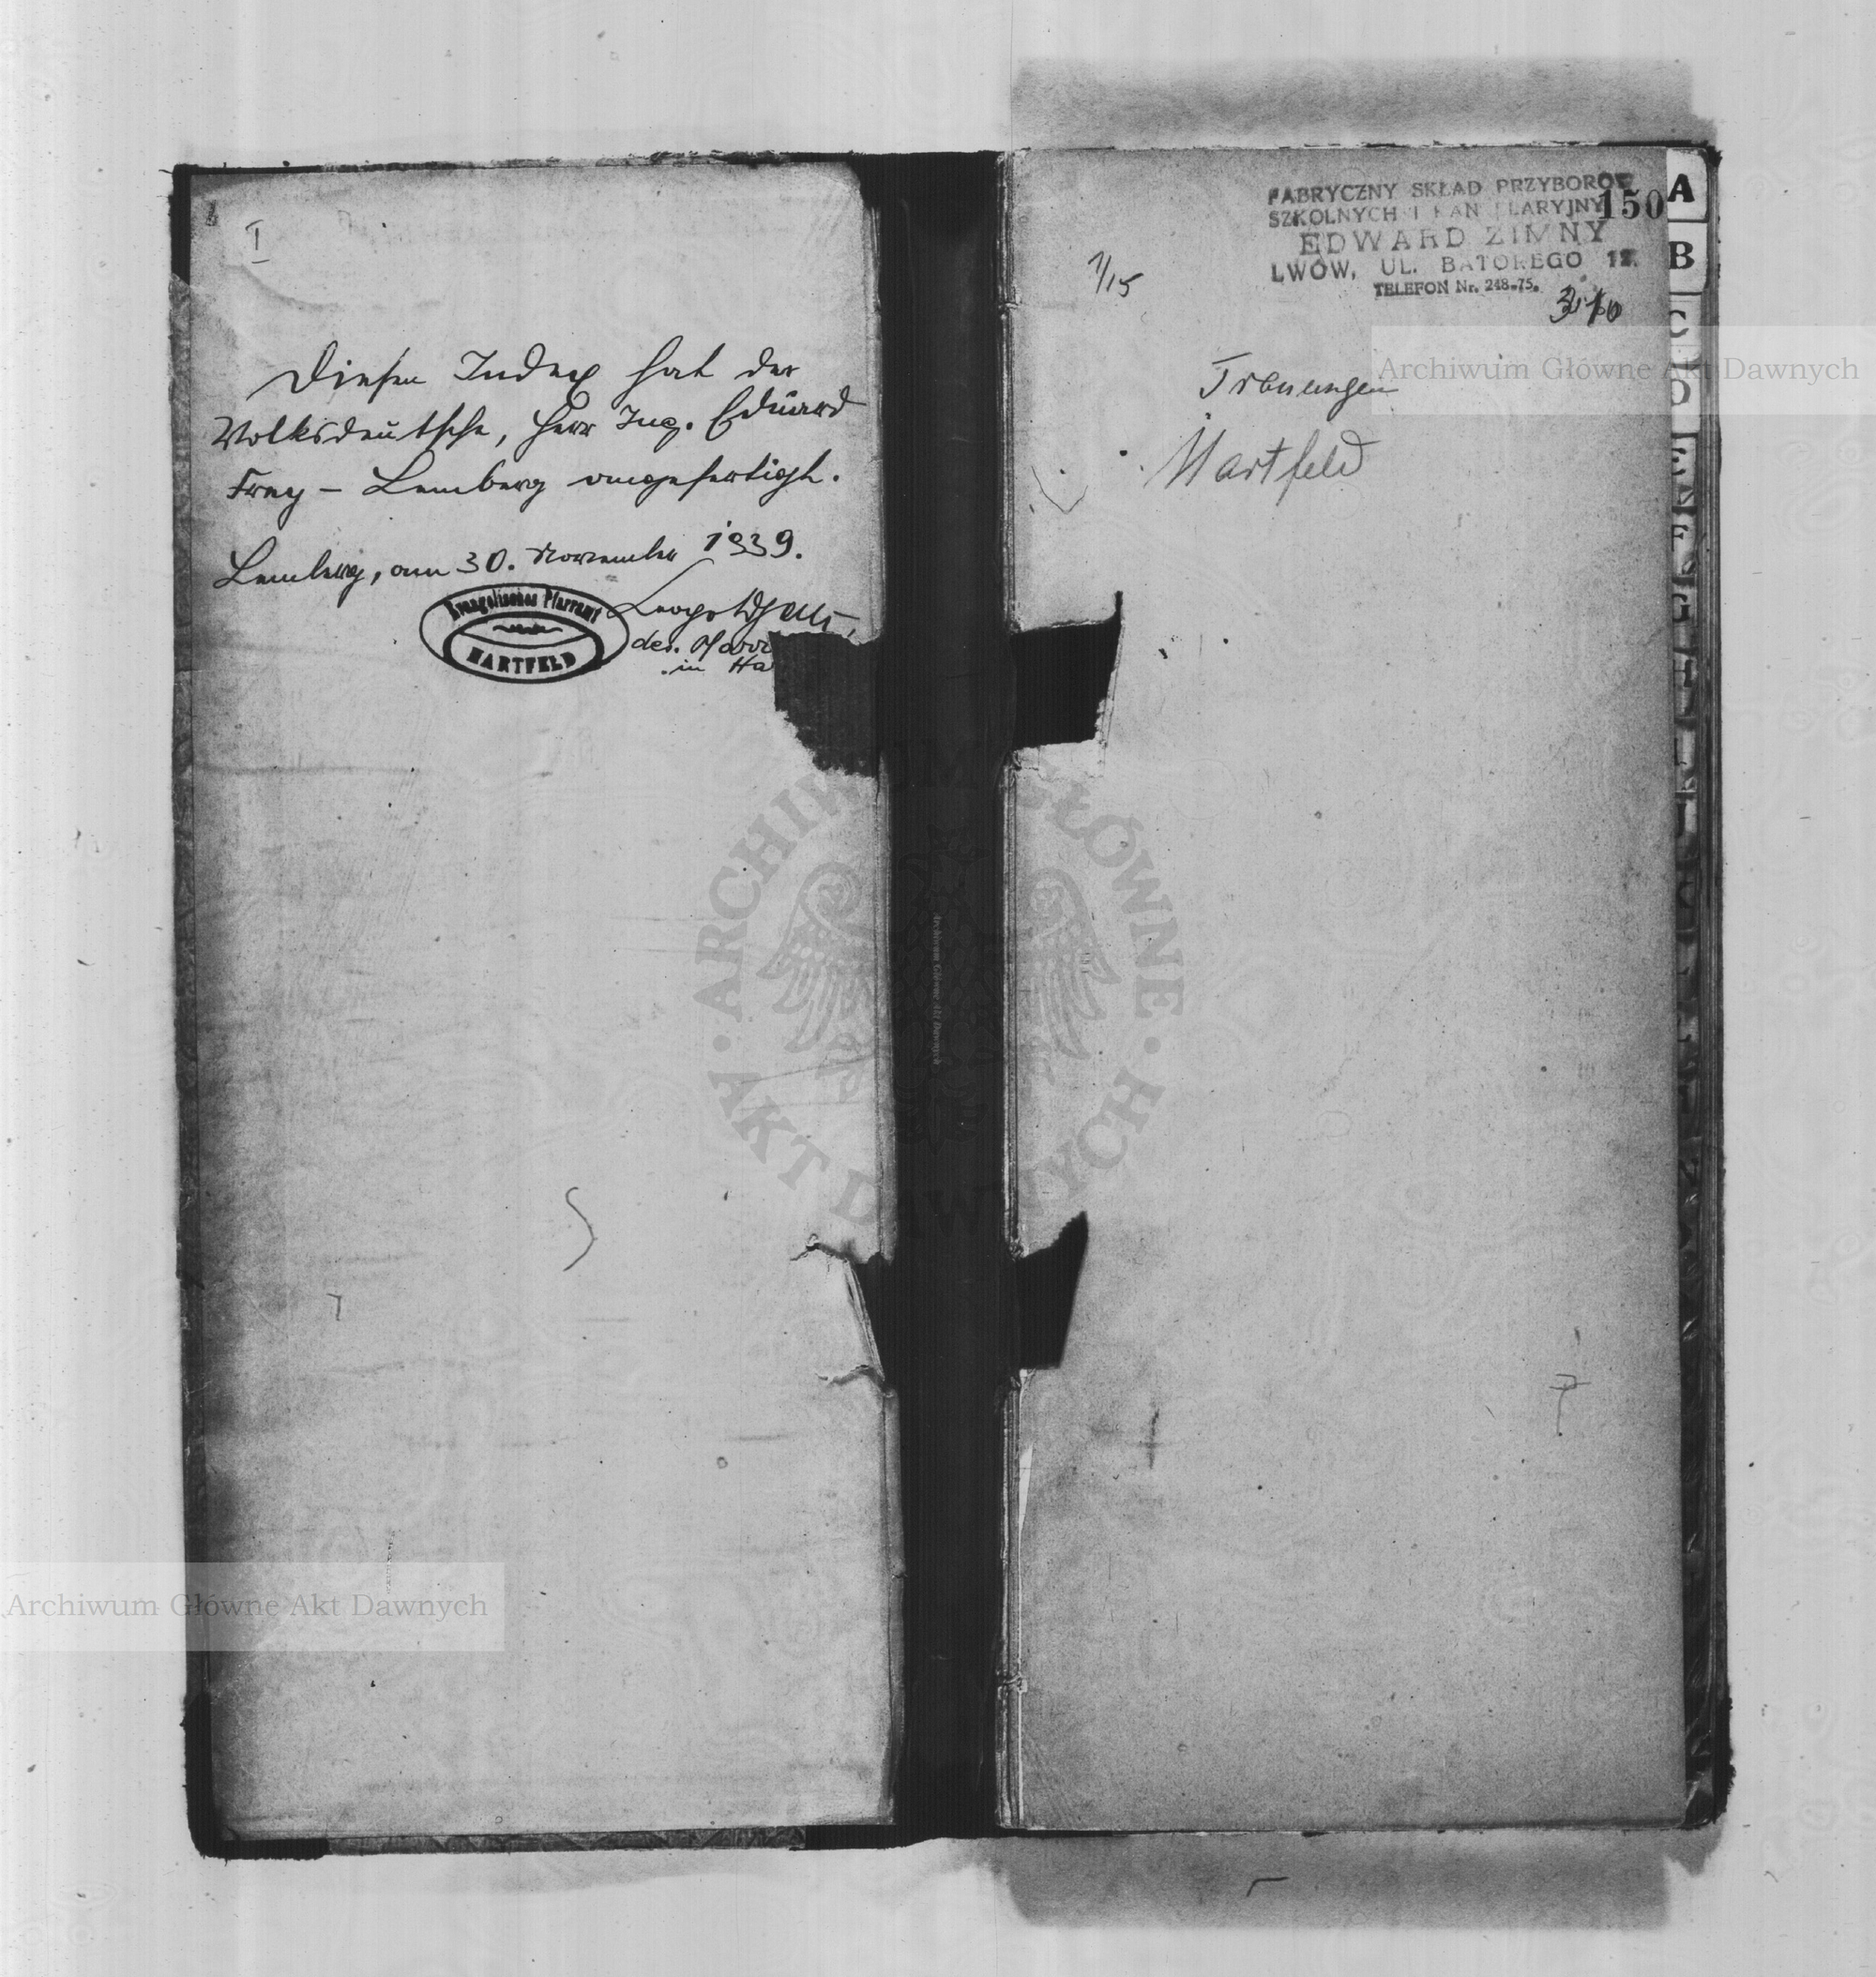 I
Diesen Index hat der
Volksdeutsche, Herr Ing. Eduard
Frey – Lemberg angefertigt.
Lemberg, am 30. November 1939.
Evangelisches Pfarramt
HARTFELD
der. Pfarr
in Ha
FABRYCZNY SKŁAD PRZYBORÓW
SZKOLNYCH I KANCELARYJNY
150
EDWARD ZIMNY
LWÓW, UL. BATOREGO 12.
TELEFON Nr. 248-75.
1/15
3·10
Trauungen
Hartfeld
A
B
C
D
E
F
G
H
Archiwum Główne Akt Dawnych
ARCHIWUM GŁÓWNE
AKT DAWNYCH
Archiwum Główne Akt Dawnych
Archiwum Główne Akt Dawnych